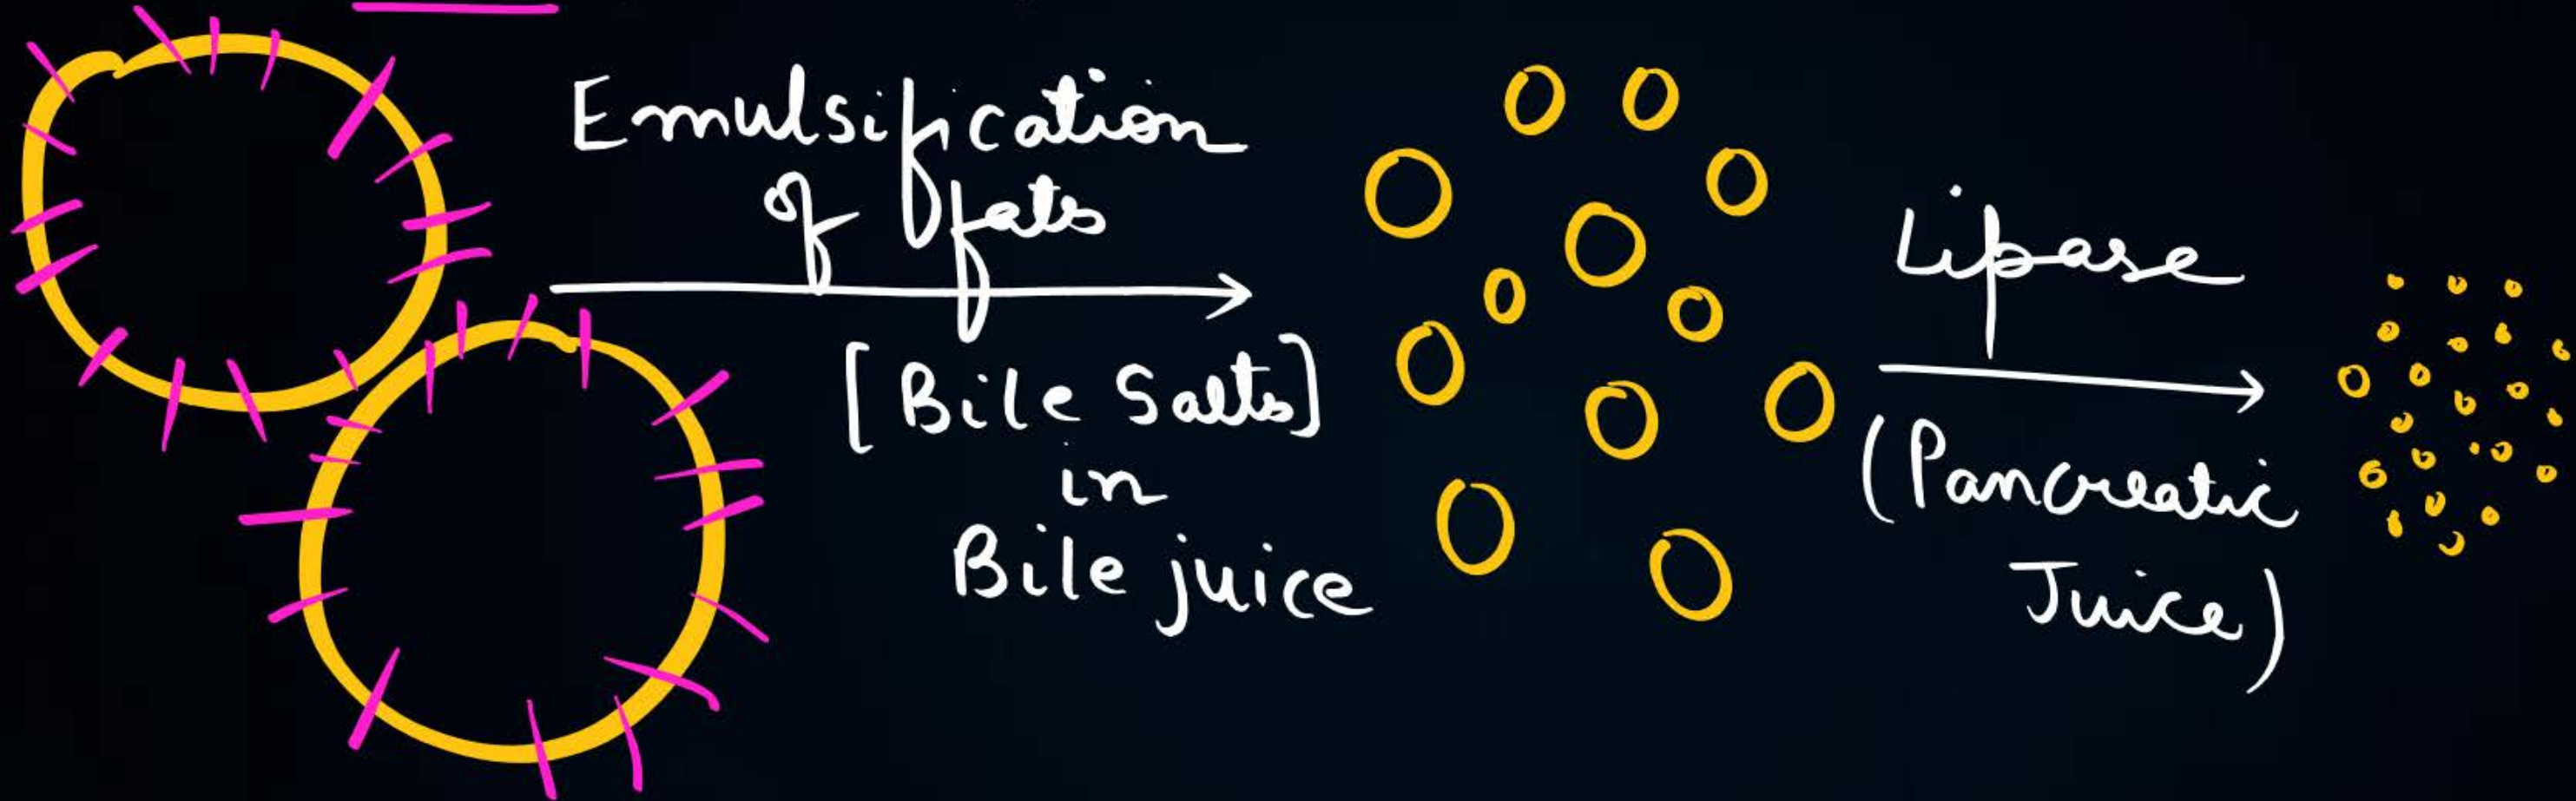 Emulsification
of fats
[Bile Salts]
in
Bile juice
Lipase
(Pancreatic
Juice)